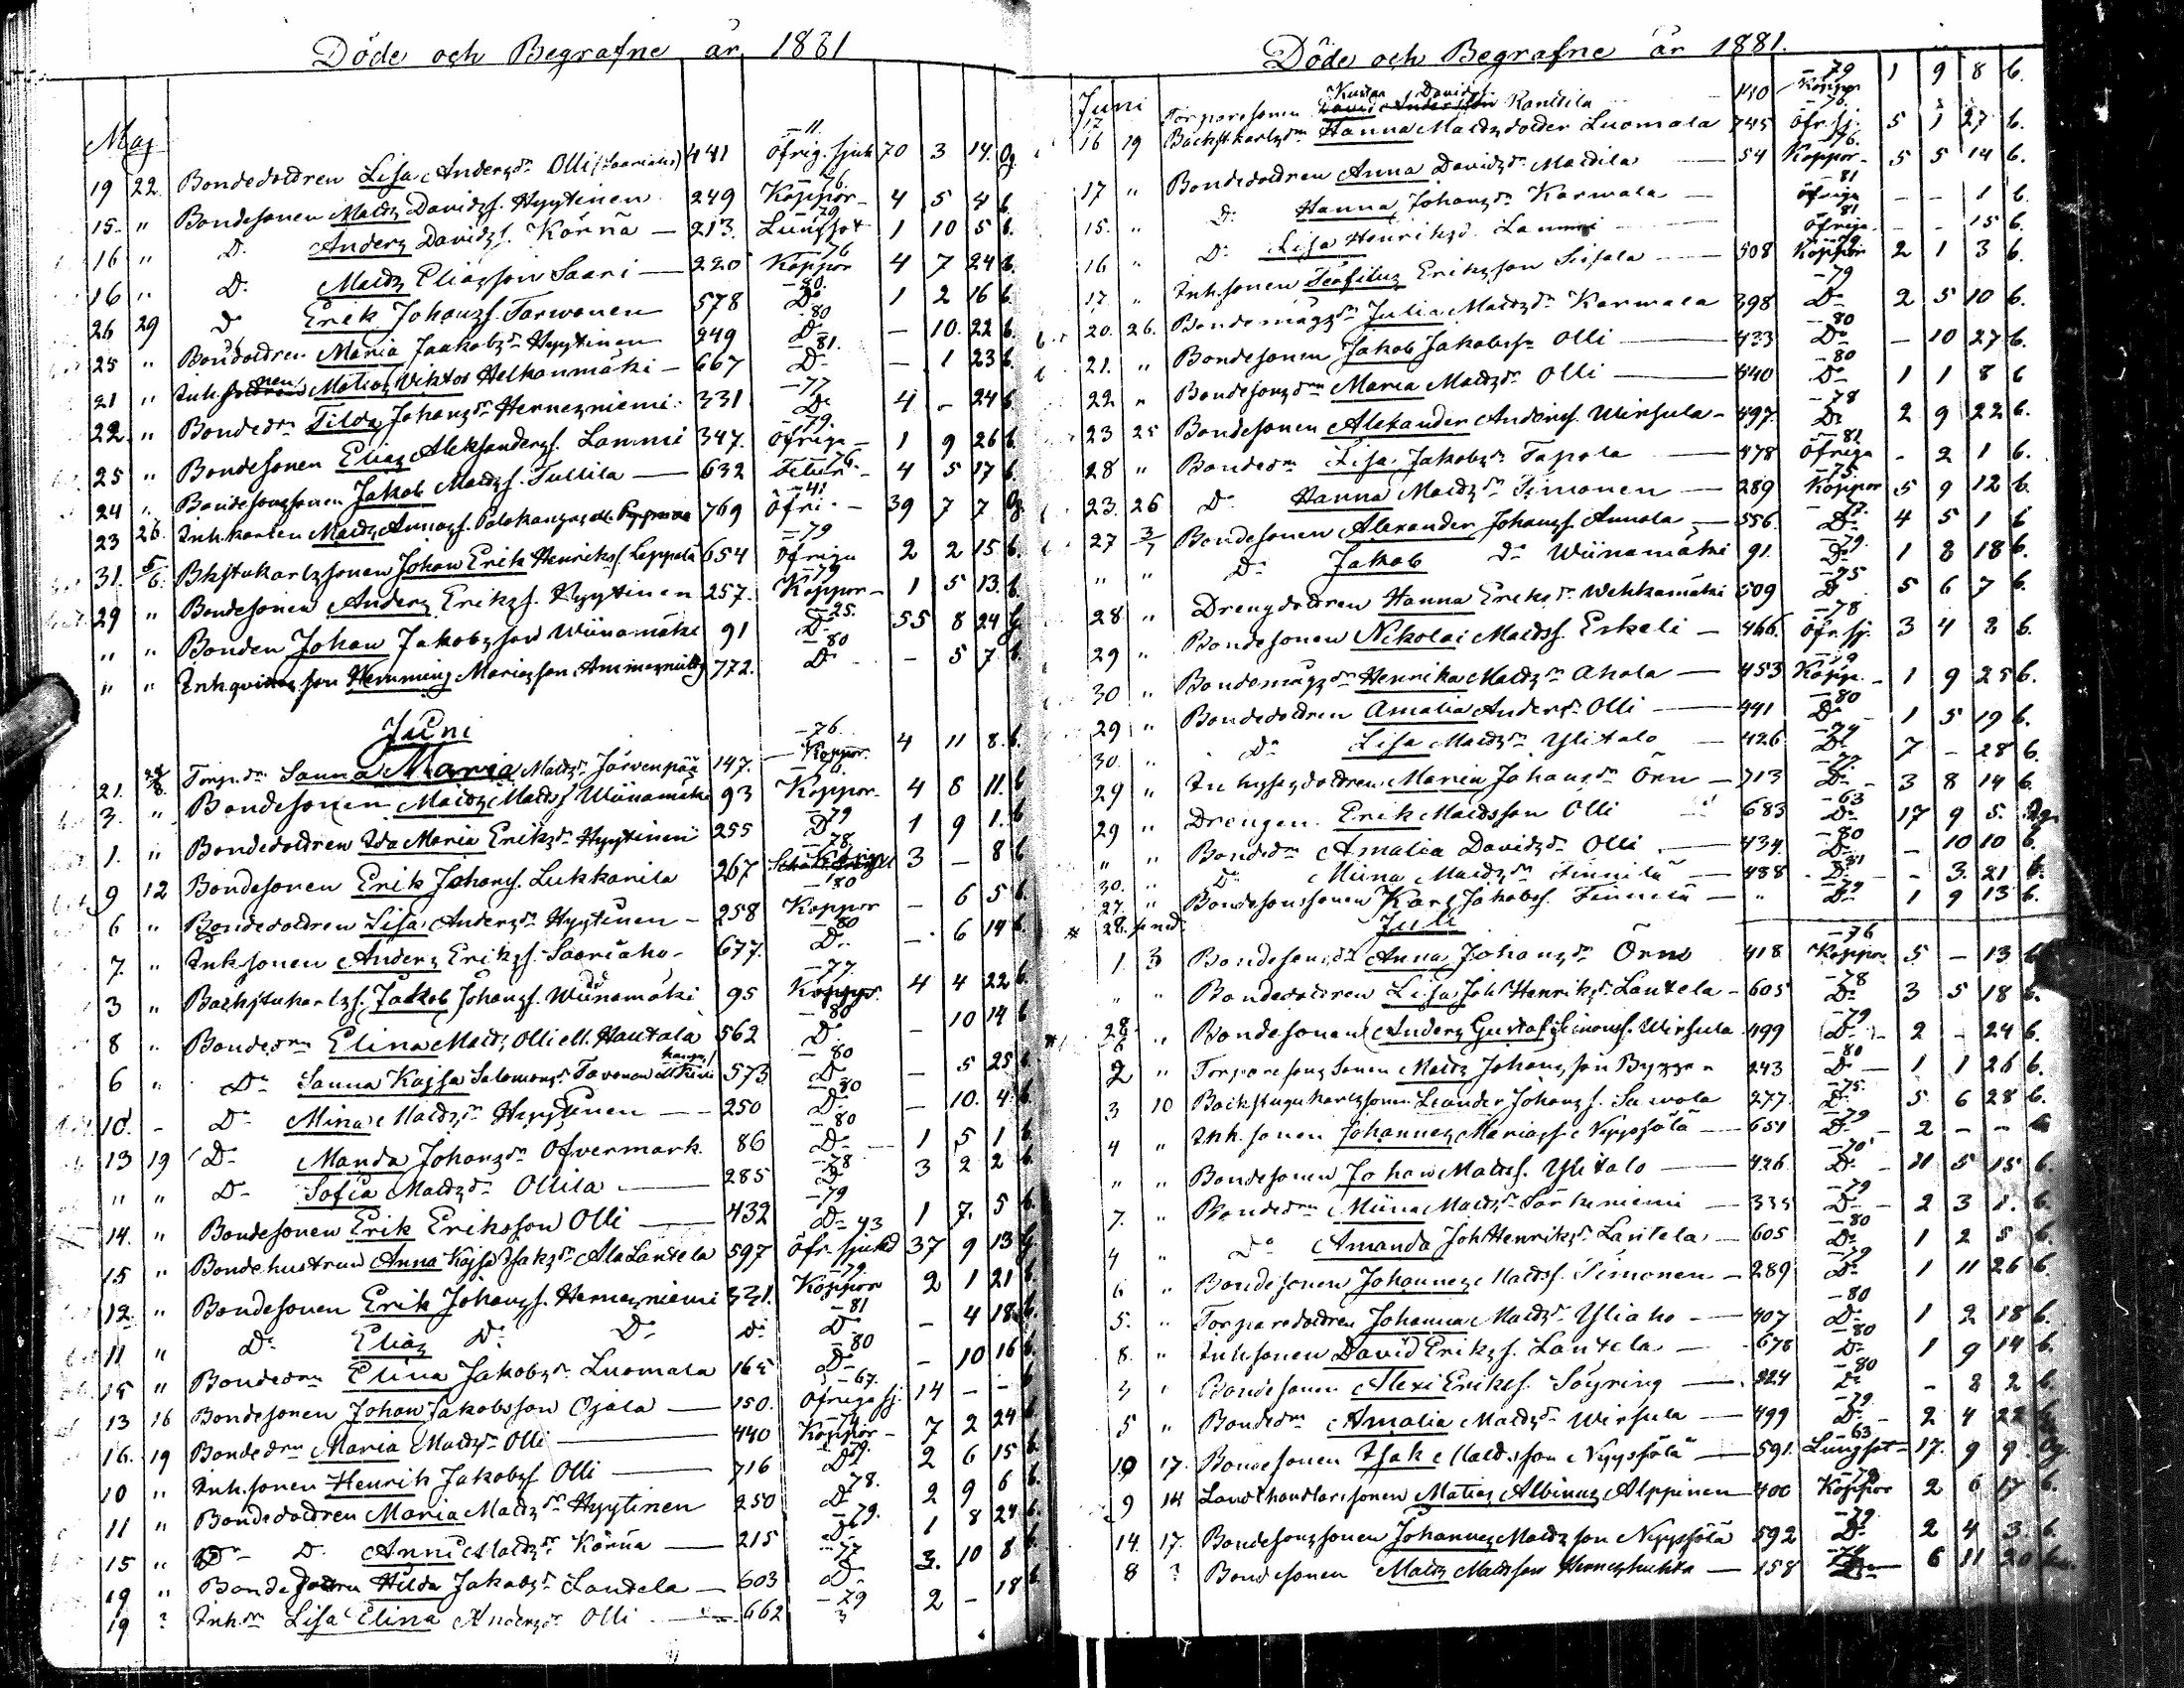 Döde och Begrafne år 1881
Maj
19 22. Bondedottren Lisa Andersdr Olli (Saariaho) 441 -11. Öfrig. sjuk 70 3 14. Og
15. " Bondesonen Matts Davidss. Hyytinen 249 -76. Koppor- 4 5 4 b
16 " D. Anders Davidss. Körnä - 213. -79 Lungsot 1 10 5 b.
16 " D. Matts Eliasson Saari - 220 -76 Koppor 4 7 24 b.
26 29 D Erik Johanss. Tarwonen 578 -80. Do 1 2 16 b
25 " Bondedottren Maria Jaakobsdr Hyytinen 249 -80 D - 10. 22 b.
21 " Inh. sonen Matias Wiktor Helkanmäki - 667 -81. D- - 1 23 b
22. " Bondedrn Tilda Johansdr Hernesniemi 331 -77 Do 4 - 24 b
25 " Bondesonen Elias Aleksanderss. Lammi 347. -79. Öfriga - 1 9 26 b
24 " Bondesonssonen Jakob Mattss. Tullila - 632 -76. Feber- 4 5 17 b
23 26. Inh. karlen Matts Annass. 769 -41 Öfri- - 39 7 7 Og
31. 5/6. Bkstukarlssonen Johan Erik Henrikss. Leppelä 654 -79 Öfriga 2 2 15. b.
29 " Bondesonen Anders Erikss. Hyytinen 257. -79 Koppor- 1 5 13. b.
" " Bonden Johan Jakobsson Wiinamäki 91 -25. D- 55 8 24 G.
" " Inh. qvinnos son Hemming Mariasson Ammesmäki 772. -80 D- - 5 7. b.
Juni
21. Torp. dr Sanna Maria Mattsdr Järvenpää 147. -76. Koppor. 4 11 8. b.
3. " Bondesonen Matts Mattss Wiinamäki 93 -76. Koppor- 4 8 11. b
1. " Bondedottren Ida Maria Eriksdr Hyytinen 255 -79 D 1 9 1. b
9 12 Bondesonen Erik Johanss. Lukkarila 267 -78. 3 - 8 b
6 " Bondedottren Lisa Andersdr Hyytinen - 258 -80 Koppor - 6 5 b.
7. " Inh sonen Anders Erikss. Saariaho- 677. -80 D. - 6 14 b.
3 " Backstukarlss. Jakob Johanss. Wiinamäki 95 -77. Koppor 4 4 22 b.
8 " Bondedrn Elina Matts. Olli ell. Hautala 562 -80 D. - 10 14 b
6 " Do Sanna Kajsa Salomonsdr Tavonen 573 -80 D - 5 25 b.
10. - D- Mina Mattsdr Hyytinen - 250 -80 D- - 10. 4. b.
13 19 D- Manda Johansdr Öfvermark. 86 -80 D- - 1 5 1 b.
" " D- Sofia Mattsdr Ollila - 285 -78 D 3 2 2 b.
14. " Bondesonen Erik Eriksson Olli - 432 -79 D- 1 7. 5 b.
15 " Bondehustrun Anna Kajsa Isaksdr Ala Lantela 597 -43 Öfr. sjukd 37 9 13 G
12. " Bondesonen Erik Johanss. Hernesniemi 331. -79. Koppor 2 1 21 b.
11 " D. Elias D. D- D. -81 D. - 4 18. b.
15 " Bondedrn Elina Jakobsdr Luomala 165 -80 D- - 10 16 b
13 16 Bondesonen Johan Jakobsson Ojala - 150. -67. Öfriga sj. 14 - - b
16. 19 Bondedrn Maria Mattsdr Olli - 440 -74. Koppor- 7 2 24 b
10 " Inh. sonen Henrik Jakobss. Olli - 716 -79. D 2 6 15 b.
11 " Bondedottren Maria Mattsdr Hyytinen 250 -78. D 2 9 6 b.
15 " Do D. Anni Mattsdr Körnä - 215 -79. D- 1 8 24 b.
19 " Bondedottren Hilda Jakobsdr Lantela - 603 -77 D- 3. 10 8 b.
19 ? Inh. dr Lisa Elina Andersdr Olli - 662 -79 2 - 18 b.
Döde och Begrafne år 1881.
Juni
17 Torparesonen Kustaa Davids. Rantila 180 -79 Koppor 1 9 8 b.
16 19 Backst. karlsdrn Hanna Mattsdotter Luomala 745 -76. Öfr. sj. 5 1 27 b.
17 " Bondedottren Anna Davidsdr Mattila - 54 -76. Koppor- 5 5 14 b.
15. " D. Hanna Johansdr Karwala - -81 Öfriga - - 1 b.
16 " D. Lisa Henriksd. Lammi - -81. Öfriga - - 15 b.
17. " Inh. sonen Teofilus Eriksson Sissala - 508 -79. Koppor 2 1 3 b.
20. 26. Bondemågsdr Julia Mattsdr Karwala 398 -79 D- 2 5 10 b.
21. " Bondesonen Jakob Jakobsson Olli - 433 -80 D- - 10 27 b.
22 " Bondesonsdrn Maria Mattsdr Olli - 440 -80 D- 1 1 8 b
23 25 Bondesonen Alexander Anderss. Wirsula - 497. -78 Do 2 9 22 b.
28 " Bondedrn Lisa Jakobsdr Tapola - 478 -81 Öfriga - 2 1 b.
23. 26 D- Hanna Mattsdr Simonen - 289 -75. Koppor 5 9 12 b
27 3/7 Bondesonen Alexander Johanss. Annala - 556. -77. D- 4 5 1 b
" " D- Jakob D- Wiinamäki 91. -79. D 1 8 18 b.
28 " Drengdottren Hanna Eriksdr Wehkamäki 509 -75 D 5 6 7 b.
29 " Bondesonen Nikolai Mattss. Eskeli - 466. -78 Öfr. sj. 3 4 2 b.
30 " Bondemågsdr Henrika Mattsdr Ahola - 453 -79 Kopp. - 1 9 25 b.
29 " Bondedottren Amalia Andersdr Olli - 441 -80 D- 1 5 19 b.
30. " Do Lisa Mattsdr Ylitalo - 426 -74 D. 7 - 28 b.
29 " Inhysesdottren Maria Johansdr Örn - 713 -77. D- 3 8 14 b.
29 " Drengen. Erik Mattsson Olli 683 -63 D- 17 9 5. Og.
" " Bondedrn Amalia Davidsdr Olli - 434 -80 D- - 10 10 b.
30. " D. Miina Mattsdr Finnilä - 488 -81 D- - 3. 21 b.
27. " Bondesonssonen Karl Jakobss. Finnilä - " -79 D- 1 9 13 b.
Juli
1. 3 Bondesonsdr Anna Johansdr Örn 418 -76 Koppor 5 - 13 b
" " Bondedottren Lisa Joh. Henriksdr Lantela - 605 -78 D- 3 5 18 b.
28/6 " Bondesonen Anders Gustaf Simonss. Wirsula 499 -79 D- - 2 - 24 b.
2 " Torparesons Sonen Matts Johansson Bygge- 243 -80 D- 1 1 26 b.
3 10 Backstugukarlssonen Leander Johanss. Savola 277. -75. D- 5 6 28 b.
4 " Inh. sonen Johannes Mariass. Nyyssölä - 651 -79 D- - 2 - - b
" " Bondesonen Johan Mattss. Ylitalo - 426 -70 D. - 11 5 15 b.
7. " Bondedrn Miina Mattsdr Särkiniemi - 335 -79 D- - 2 3 1. b.
4 " Do Amanda Joh Henriksdr Lantela - 605 -80 D. 1 2 5 b.
6 " Bondesonen Johannes Mattss. Simonen - 289 -79 D- 1 11 26 b.
5. " Torparedottren Johanna Mattsdr Yliaho - 407 -80 D- 1 2 18 b.
8. " Inh sonen David Erikss. Lantela - 678 -80 D- 1 9 14 b.
3 " Bondesonen Alexi Erikss. Söyring - 224 -80 D - 8 2 b.
5 " Bondedrn Amalia Mattsdr Wirsula - 499 -79 D- 2 4 22 b.
10 17. Bondesonen Isak Mattsson Nyyssölä - 591. -63 Lungsot - 17. 9 9. Og.
9 14 Landthandlarssonen Matias Albinus Alppinen 400 -78 Koppor 2 6 17 b.
14. 17. Bondesonssonen Johannes Mattsson Nyyssölä 592 -79. D- 2 4 3 b.
8 ? Bondesonen Matts Mattsson Herneshuhta - 158 -74 D- 6 11 20